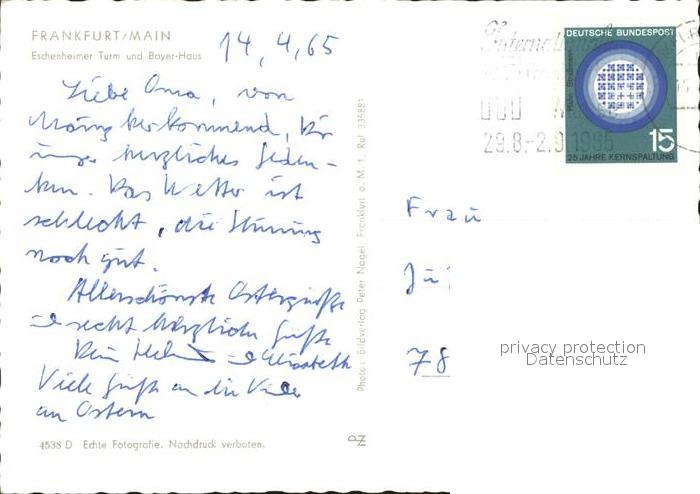 FRANKFURT/MAIN
Eschenheimer Turm und Bayer-Haus
14.4.65
Liebe Oma, von
herkommend,
herzliches Geden-
ken. Das Wetter ist
schlecht, die Stimmung
noch gut.
Allerschönste Ostergrüße
recht herzliche Grüße
Dein Elisabeth
Viele Grüße an die
an Ostern
4538 D Echte Fotografie. Nachdruck verboten.
Photo- u. Bildverlag Peter Nagel, Frankfurt a. M. 1, Ruf 335881
29.8.-2.9.1965
DEUTSCHE BUNDESPOST
15
25 JAHRE KERNSPALTUNG
Frau
78
privacy protection
Datenschutz